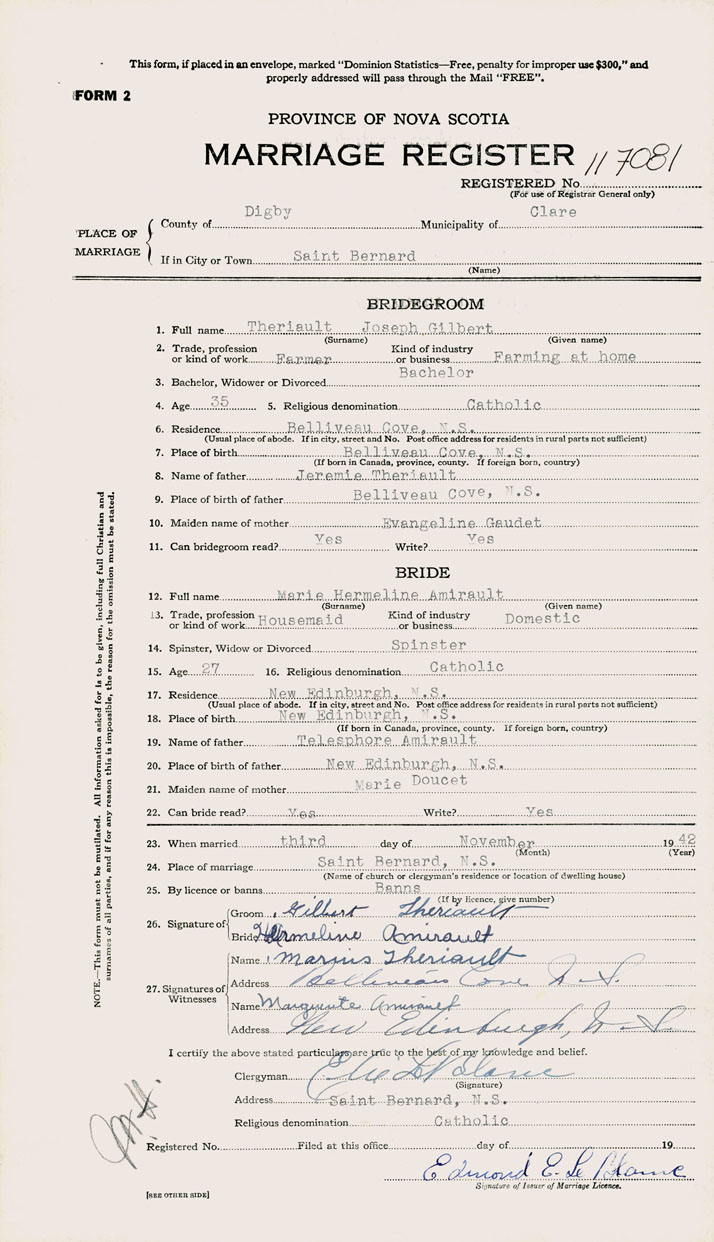 This form, if placed in an envelope, marked "Dominion Statistics—Free, penalty for improper use $300," and
properly addressed will pass through the Mail "FREE".
FORM 2
PROVINCE OF NOVA SCOTIA
MARRIAGE REGISTER 117081
REGISTERED No.
(For use of Registrar General only)
PLACE OF MARRIAGE
County of Digby Municipality of Clare
If in City or Town Saint Bernard
(Name)
BRIDEGROOM
1. Full name Theriault Joseph Gilbert
(Surname) (Given name)
2. Trade, profession or kind of work Farmer Kind of industry or business Farming at home
3. Bachelor, Widower or Divorced Bachelor
4. Age 35 5. Religious denomination Catholic
6. Residence Belliveau Cove, N.S.
(Usual place of abode. If in city, street and No. Post office address for residents in rural parts not sufficient)
7. Place of birth Belliveau Cove, N.S.
(If born in Canada, province, county. If foreign born, country)
8. Name of father Jeremie Theriault
9. Place of birth of father Belliveau Cove, N.S.
10. Maiden name of mother Evangeline Gaudet
11. Can bridegroom read? Yes Write? Yes
BRIDE
12. Full name Marie Hermeline Amirault
(Surname) (Given name)
13. Trade, profession or kind of work Housemaid Kind of industry or business Domestic
14. Spinster, Widow or Divorced Spinster
15. Age 27 16. Religious denomination Catholic
17. Residence New Edinburgh, N.S.
(Usual place of abode. If in city, street and No. Post office address for residents in rural parts not sufficient)
18. Place of birth New Edinburgh, N.S.
(If born in Canada, province, county. If foreign born, country)
19. Name of father Telesphore Amirault
20. Place of birth of father New Edinburgh, N.S.
21. Maiden name of mother Marie Doucet
22. Can bride read? Yes Write? Yes
23. When married third day of November 1942
(Month) (Year)
24. Place of marriage Saint Bernard, N.S.
(Name of church or clergyman's residence or location of dwelling house)
25. By licence or banns Banns
(If by licence, give number)
26. Signature of
Groom Gilbert Theriault
Bride Hermeline Amirault
27. Signatures of Witnesses
Name Marius Theriault
Address Belliveau Cove N.S.
Name Marguerite Amirault
Address New Edinburgh, N.S.
I certify the above stated particulars are true to the best of my knowledge and belief.
Clergyman LeBlanc
(Signature)
Address Saint Bernard, N.S.
Religious denomination Catholic
Registered No. Filed at this office day of 19
Edmond E. Le Blanc
Signature of Issuer of Marriage Licence.
[SEE OTHER SIDE]
NOTE.—This form must not be mutilated. All information asked for is to be given, including full Christian and
surnames of all parties, and if for any reason this is impossible, the reason for the omission must be stated.